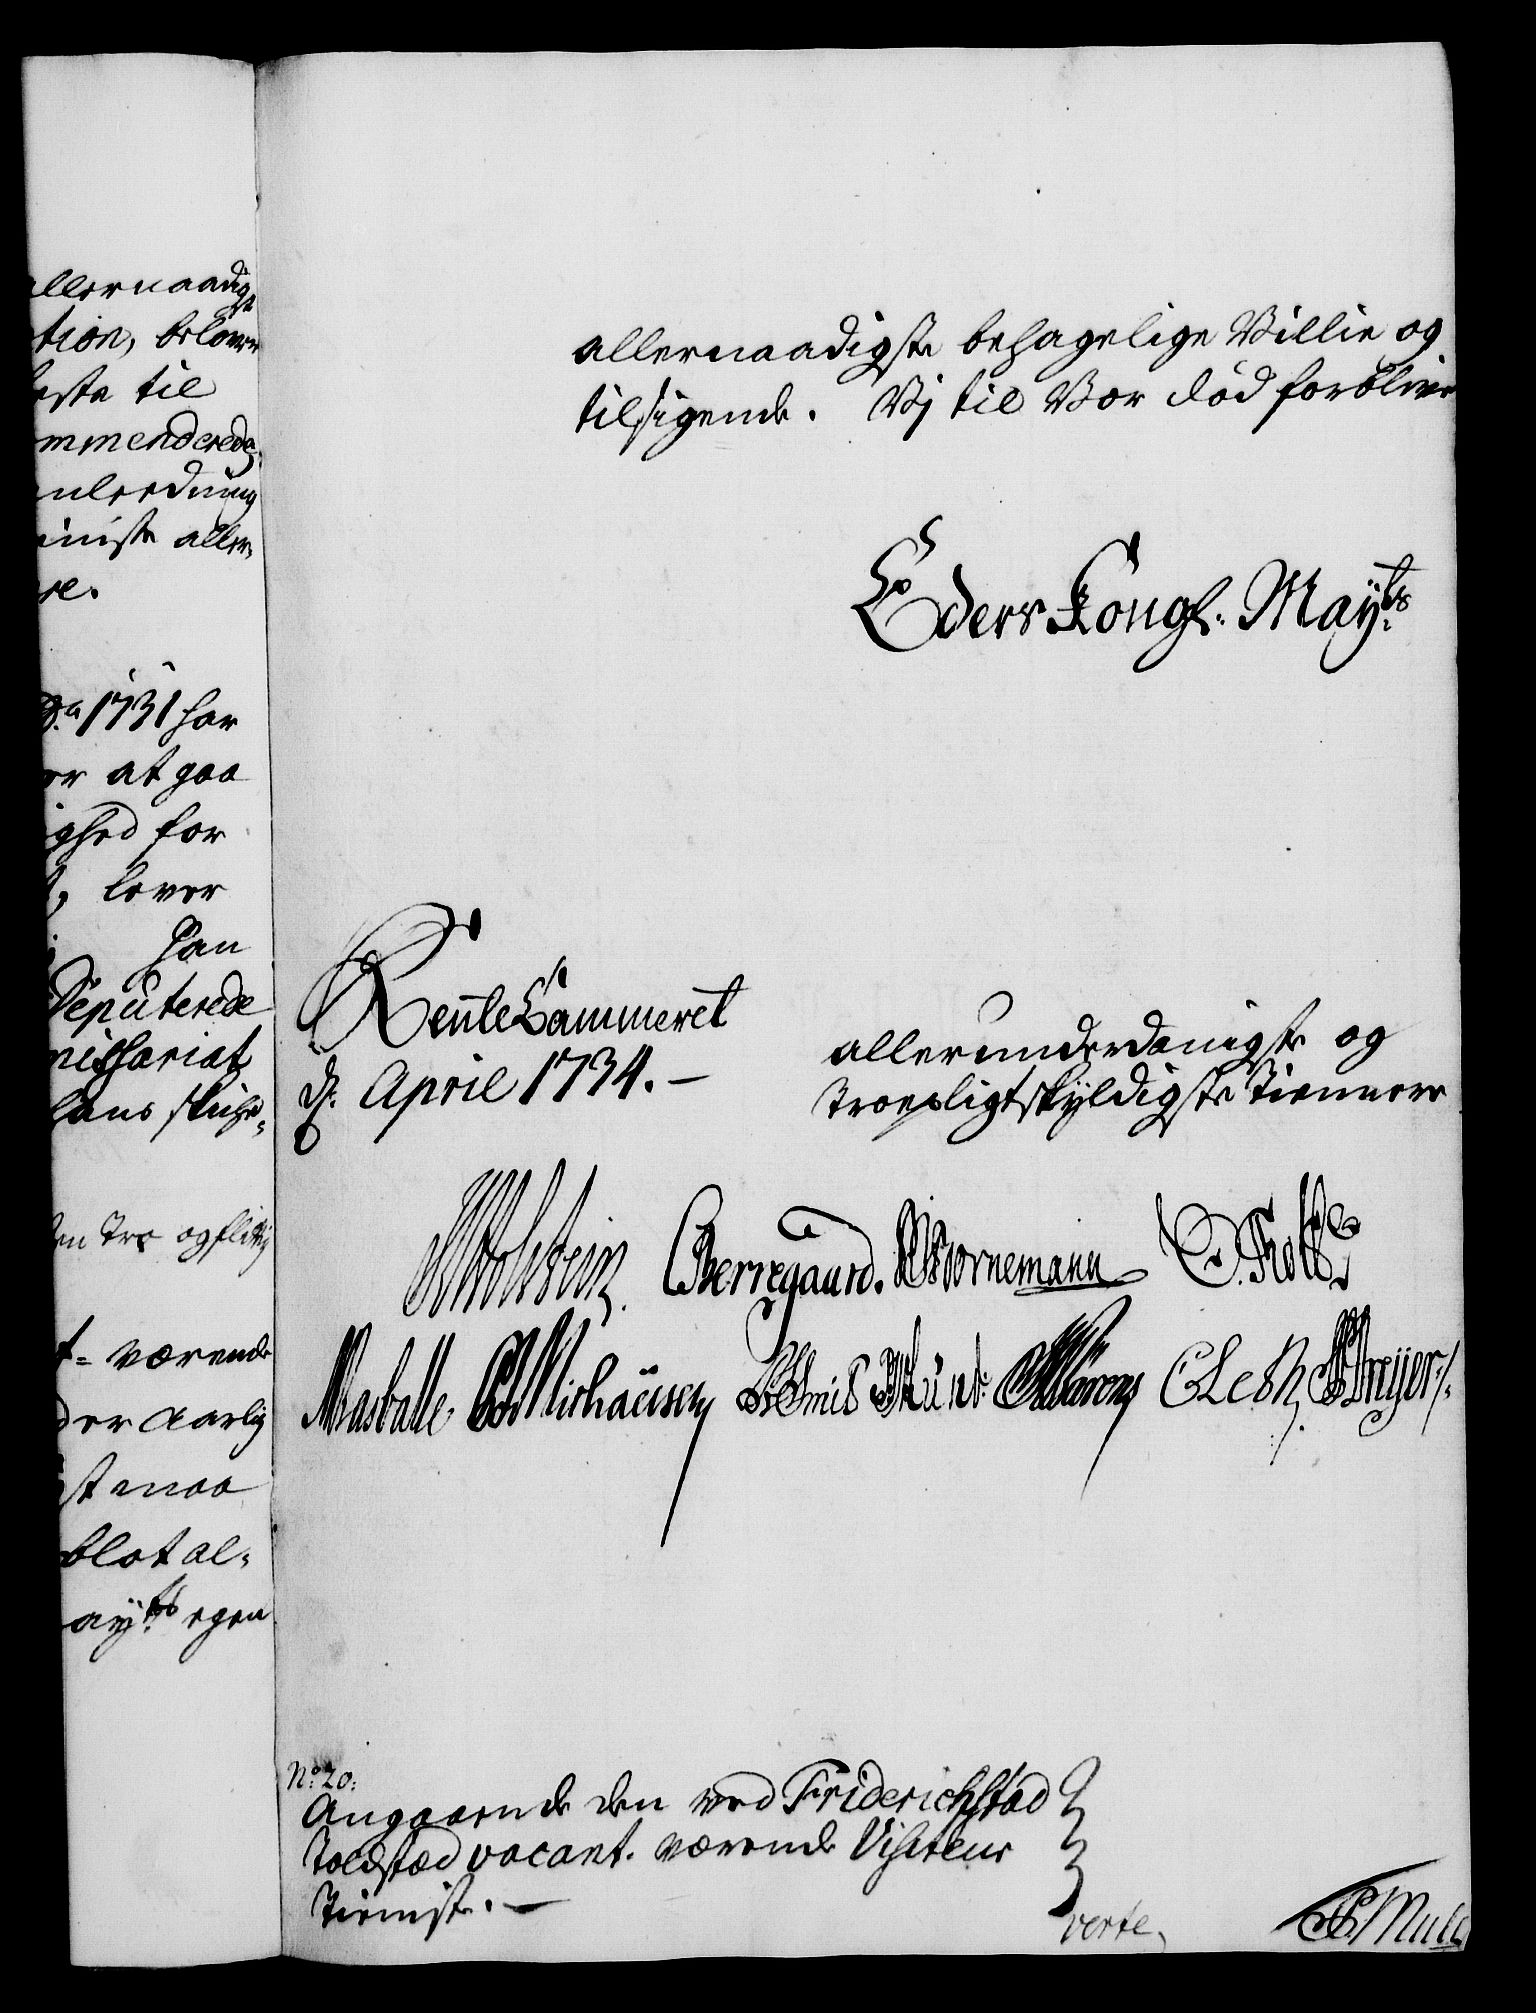 allernaadigst
tion, belover
beste til
mmenderede
anleedning
iniste aller-
re.
1731 har
er at gaa
ighed for
lever
han
Deputerede
missariat
hans skuld-
den Tro og flittig
t- værende
der aarlig
st maa
blot al-
ayts egen
allernaadigste behagelige Villie og
tilsigende. Vj til Vor død forblive
Eders Kongl. Mayts
RenteCammeret
d. April 1734. —
allerunderdanigste og
troepligtskyldigste tiennere
Holstein. CBerregaard. Woornemann
Masballe Nirhausen CLeth. Dreyer
No 20:
Angaaende den ved Friderichstad
Toldsted vacant værende Visiteur
Tieniste. —
verte
Mull